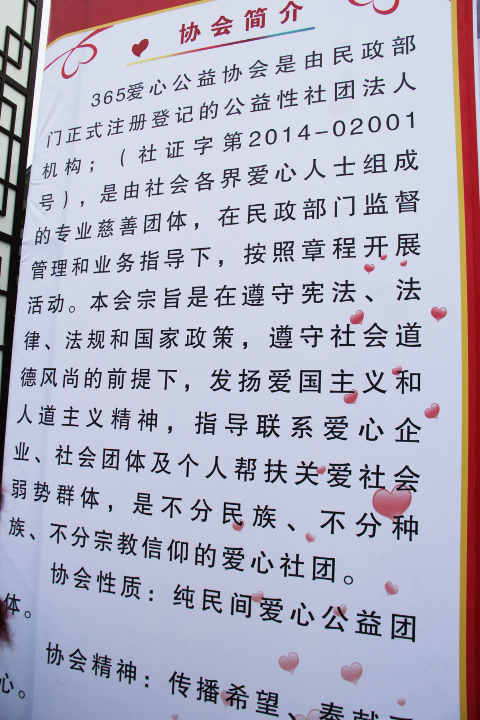 协会简介
365爱心公益协会是由民政部
门正式注册登记的公益性社团法人
机构；（社证字第2014-02001
号），是由社会各界爱心人士组成
的专业慈善团体，在民政部门监督
管理和业务指导下，按照章程开展
活动。本会宗旨是在遵守宪法、法
律、法规和国家政策，遵守社会道
德风尚的前提下，发扬爱国主义和
人道主义精神，指导联系爱心企
业、社会团体及个人帮扶关爱社会
弱势群体，是不分民族、不分种
族、不分宗教信仰的爱心社团。
协会性质：纯民间爱心公益团
体。
协会精神：传播希望、奉献
心。